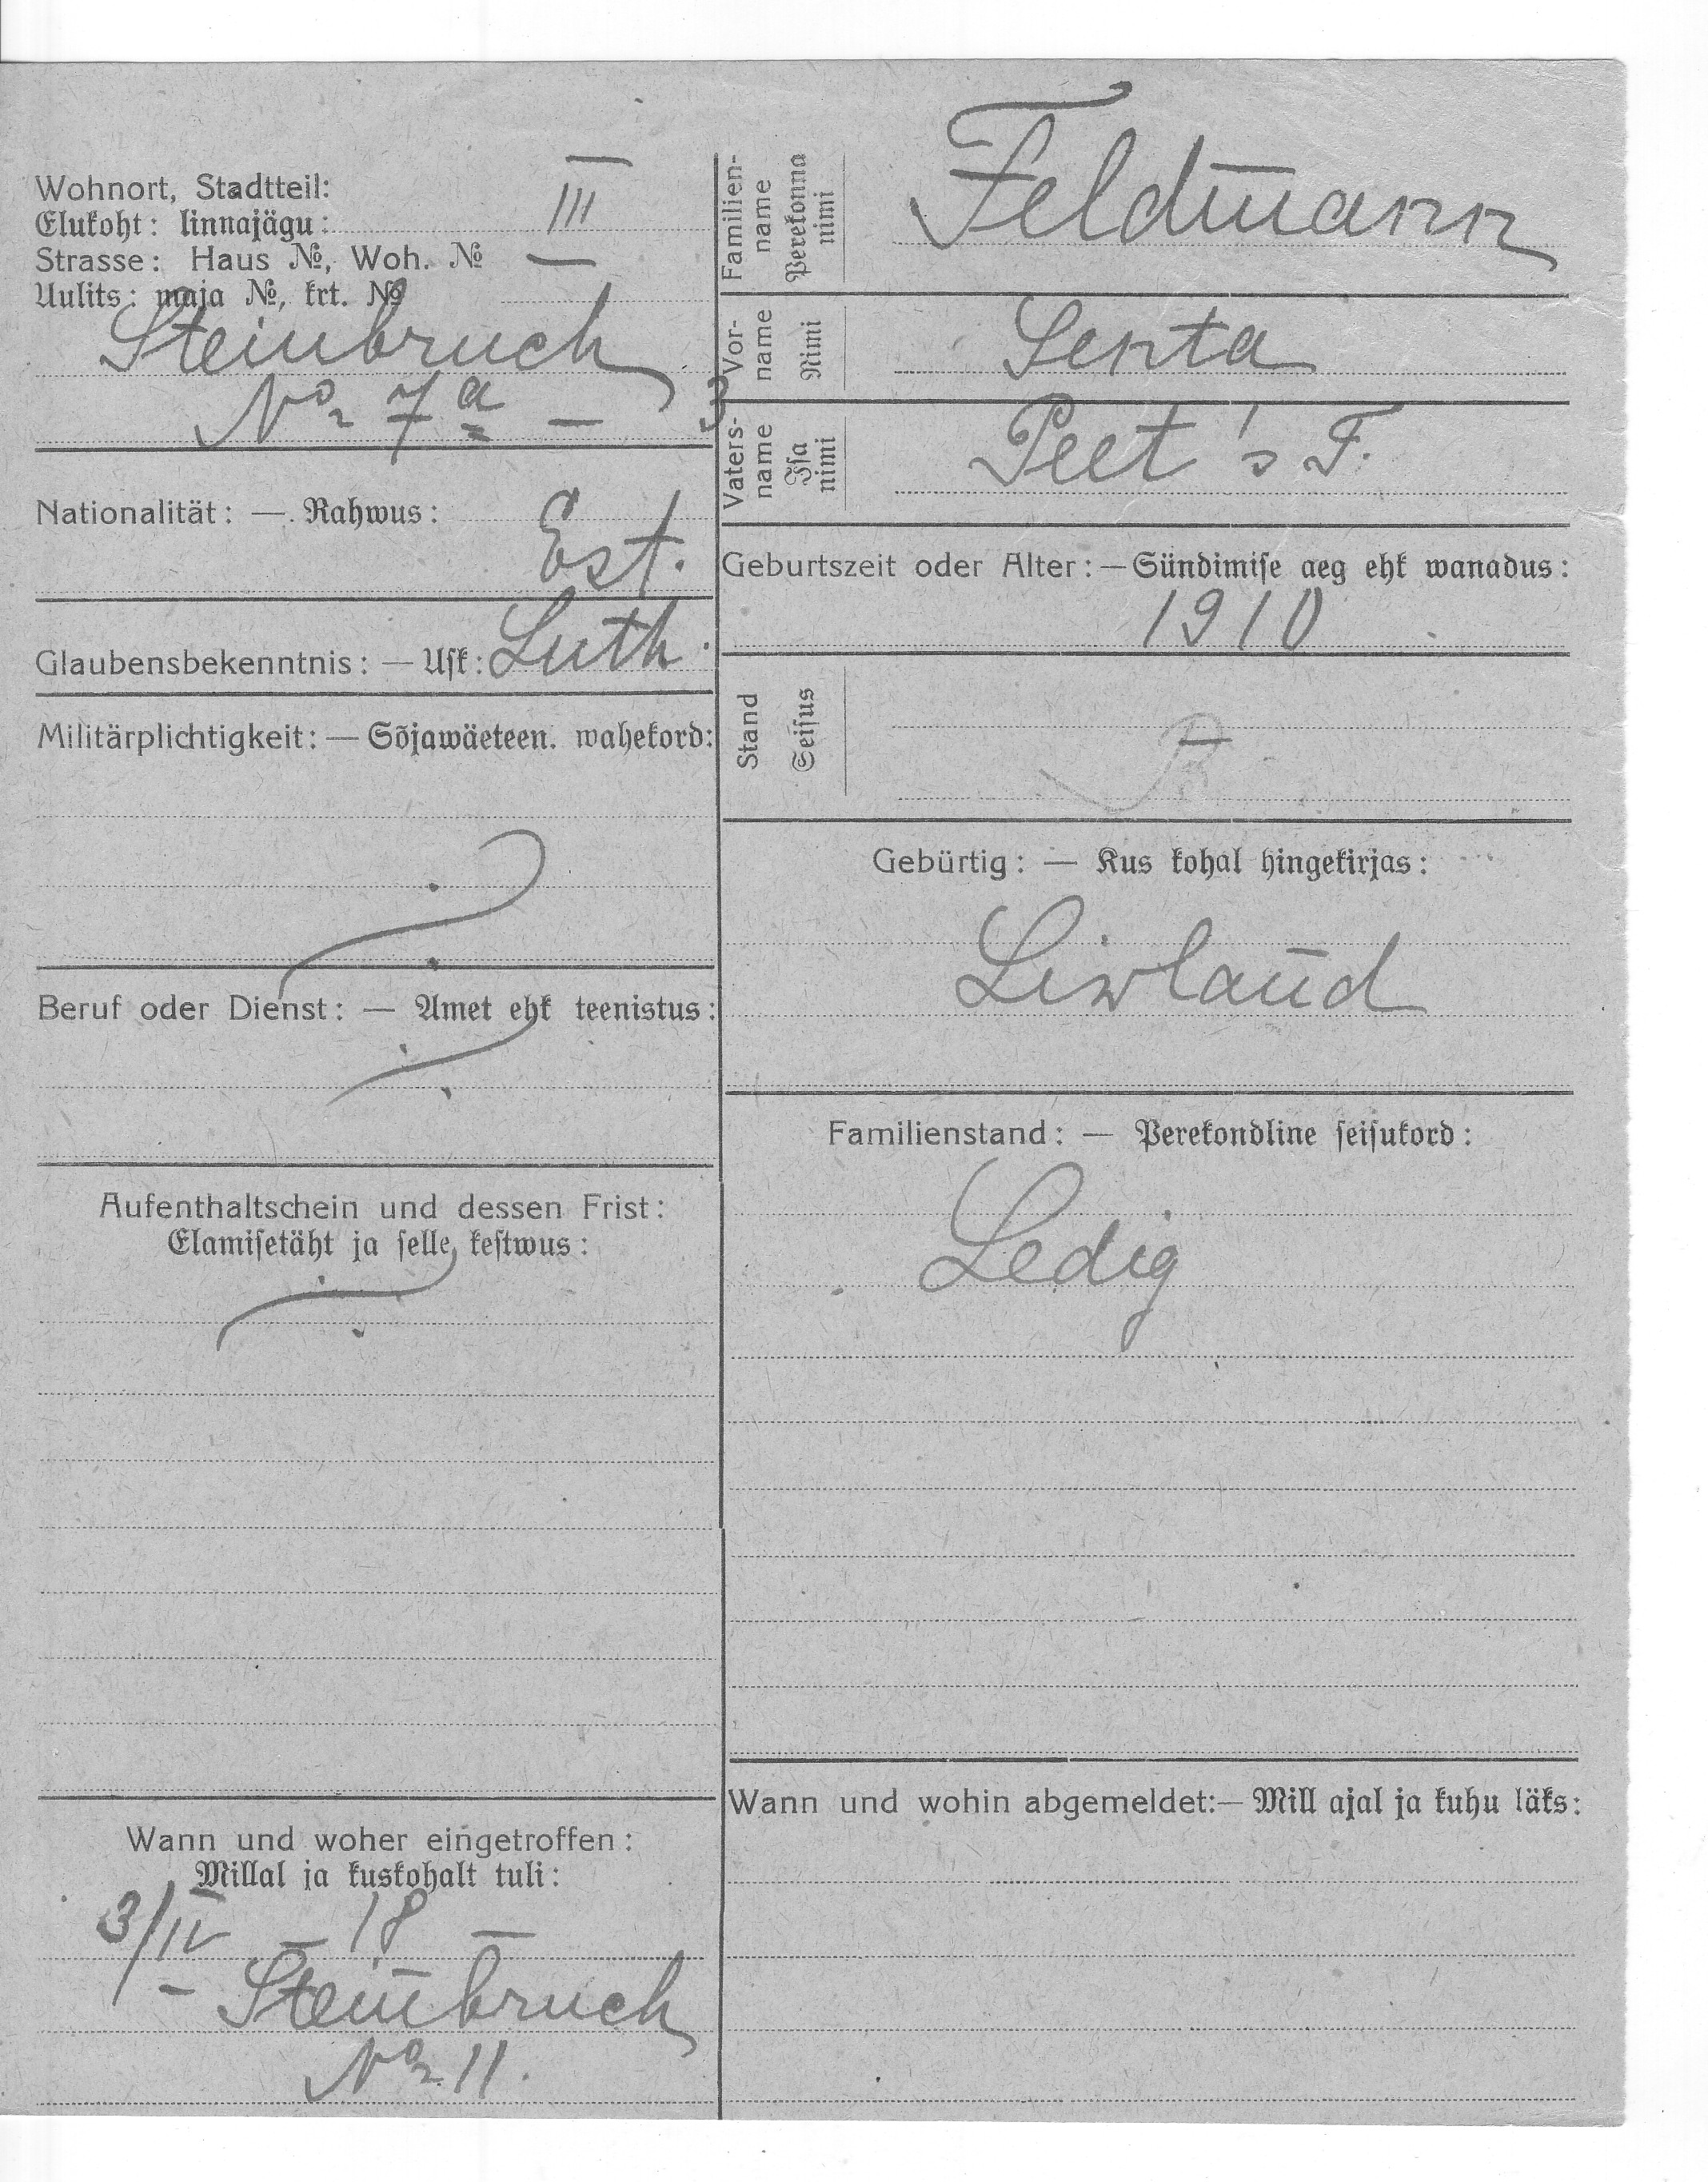 Wohnort, Stadtteil:
Elukoht: linnajägu:
III
Strasse: Haus №, Woh. № —
Uulits: maja №, krt. №
Steinbruch
№ 7a — 3
Nationalität: — Rahwus:
Est.
Glaubensbekenntnis: — Usk: Luth.
Militärplichtigkeit: — Sõjawäeteen. wahekord:
Beruf oder Dienst: — Amet ehk teenistus:
Aufenthaltschein und dessen Frist:
Elamisetäht ja selle kestwus:
Wann und woher eingetroffen:
Millal ja kuskohalt tuli:
3/IV – 18 –
– Steinbruch
№ 11.
Familien-
name
Perekonna
nimi
Feldmann
Vor-
name
Nimi
Senta
Vaters-
name
Isa
nimi
Peet's F.
Geburtszeit oder Alter: — Sündimise aeg ehk wanadus:
1910
Stand
Seisus
Gebürtig: — Kus kohal hingekirjas:
Liwland
Familienstand: — Perekondline seisukord:
Ledig
Wann und wohin abgemeldet: — Mill ajal ja kuhu läks: